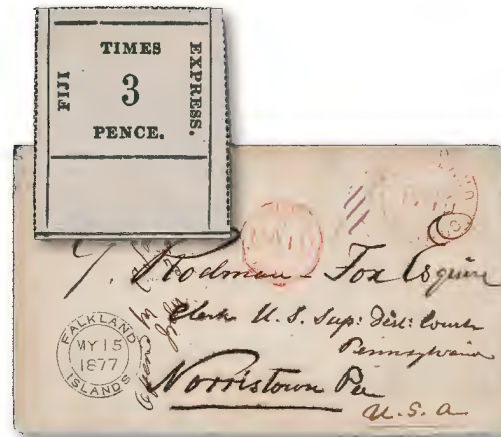 TIMES
FIJI 3 EXPRESS.
PENCE.
Rodman Fox Esquire
Clerk U.S. Sup: Dist: Court
Pennsylvania
Norristown Pa
U.S.a
FALKLAND
MY 15
1877
ISLANDS